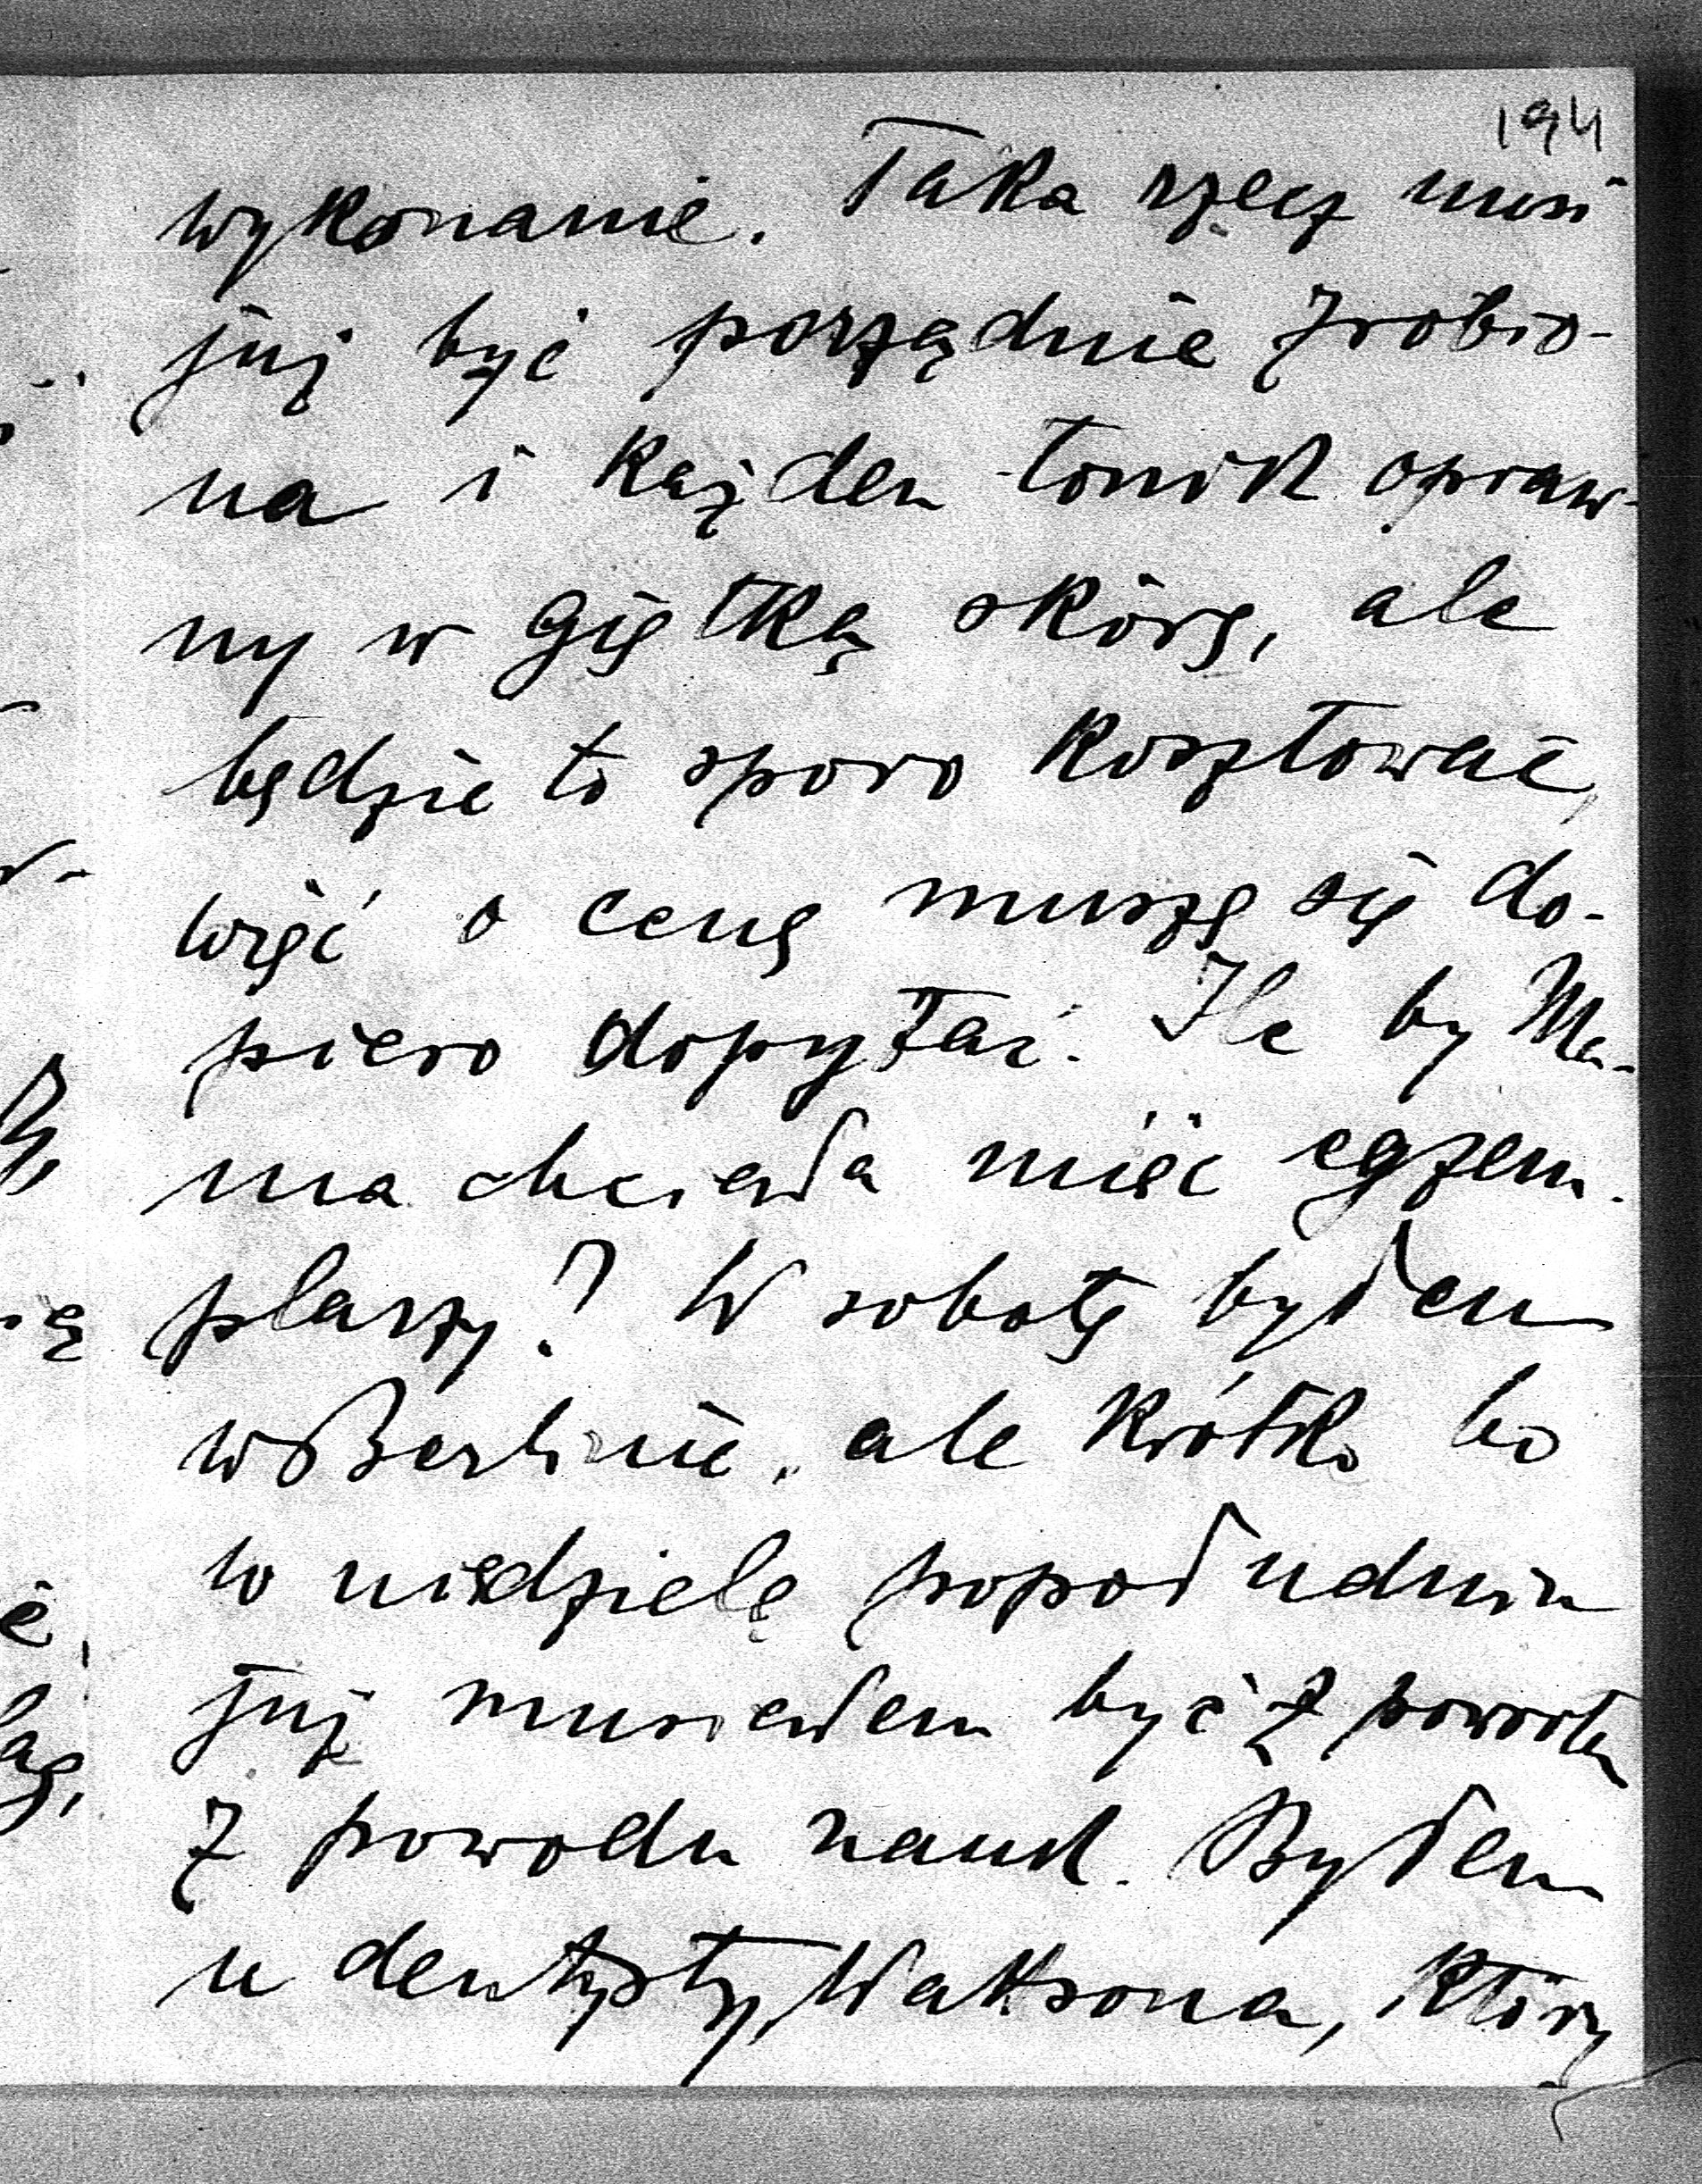 194
wykonanie. Taka rzecz musi
już być porządnie zrobio-
na i każden tomik opraw-
ny w giętką skórę, ale
będzie to sporo kosztować,
więć o cenę muszę się do-
piero dopytać. Ile by Ma-
ma chciała mieć egzem-
plarzy? W sobotę byłem
w Berlinie, ale krótko bo
w niedzielę popołudniu
już musiałem być z powrotem
z powodu nauk. Byłem
u dentysty Watsona, który